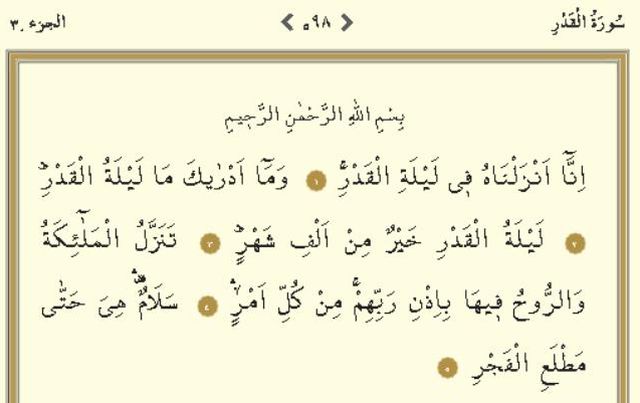 سُورَةُ الْقَدْرِ ❮ ٥٩٨ ❯ الجزء ٣٠
بِسْمِ اللهِ الرَّحْمٰنِ الرَّحِيمِ
اِنَّٓا اَنْزَلْنَاهُ فِى لَيْلَةِ الْقَدْرِۚ ١ وَمَٓا اَدْرٰيكَ مَا لَيْلَةُ الْقَدْرِۜ
٢ لَيْلَةُ الْقَدْرِ خَيْرٌ مِنْ اَلْفِ شَهْرٍۜ ٣ تَنَزَّلُ الْمَلٰٓئِكَةُ
وَالرُّوحُ فِيهَا بِاِذْنِ رَبِّهِمْۚ مِنْ كُلِّ اَمْرٍۙۛ ٤ سَلَامٌ۠ۛ هِىَ حَتّٰى
مَطْلَعِ الْفَجْرِ ٥